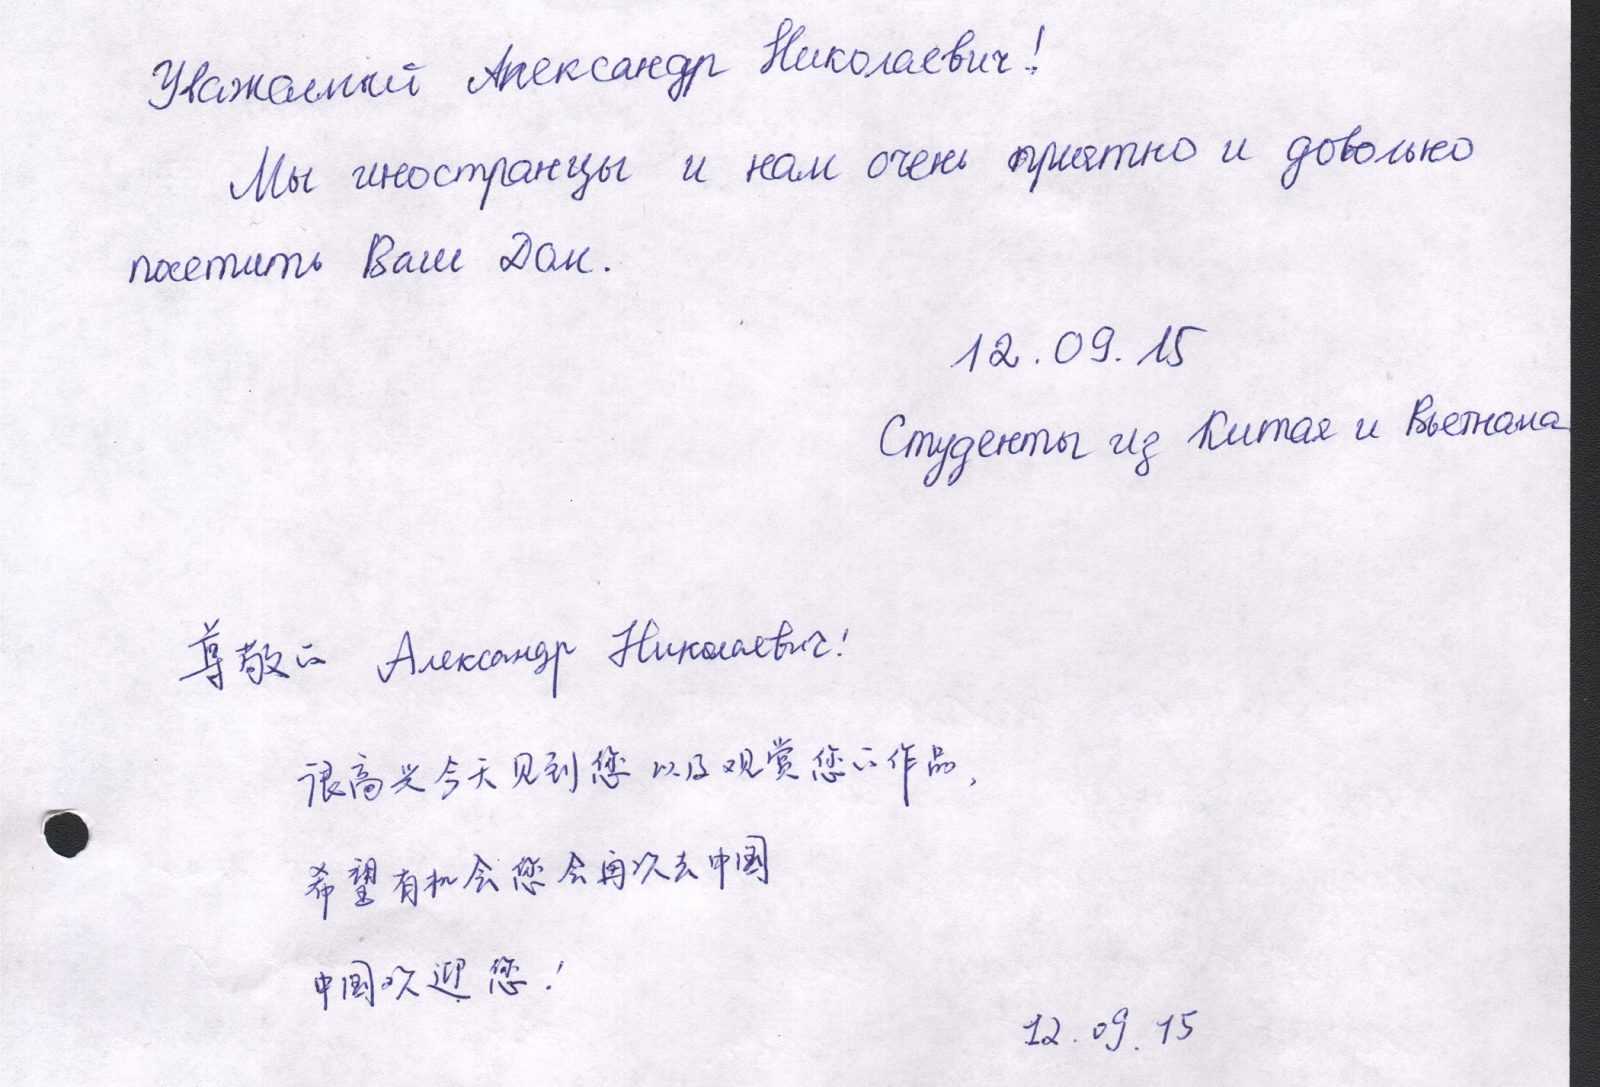 Уважаемый Александр Николаевич!
Мы иностранцы и нам очень приятно и довольно
посетить Ваш Дом.
12.09.15
Студенты из Китая и Вьетнама
尊敬的 Александр Николаевич!
很高兴今天见到您以及观赏您的作品,
希望有机会您会再次去中国
中国欢迎您!
12.09.15